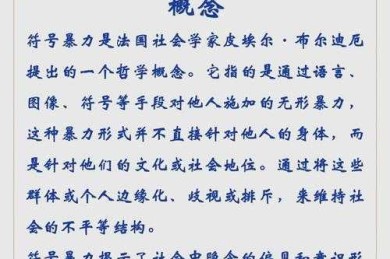 概念
符号暴力是法国社会学家皮埃尔·布尔迪厄
提出的一个哲学概念。它指的是通过语言、
图像、符号等手段对他人施加的无形暴力，
这种暴力形式并不直接针对他人的身体，而
是针对他们的文化或社会地位。通过将这些
群体或个人边缘化、歧视或排斥，来维持社
会的不平等结构。
符号暴力揭示了社会中隐含的偏见和意识形